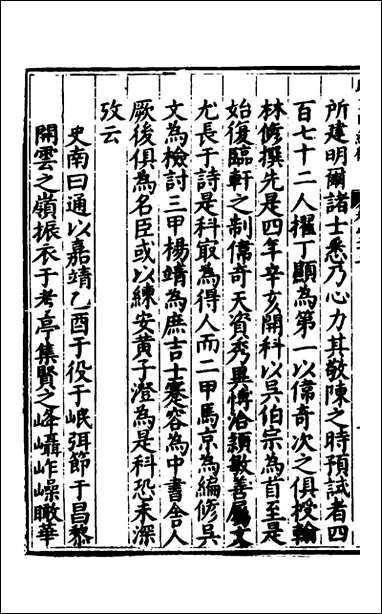 所建明爾諸士悉乃心力其敬陳之時預試者四
百七十二人擢丁顯為第一以偁奇次之俱授翰
林修撰先是四年辛亥開科以吳伯宗為首至是
始復臨軒之制偁奇天資秀異博洽穎敏善屬文
尤長于詩是科㝡為得人而二甲馬京為編修吳
文為檢討三甲楊靖為庶吉士蹇容為中書舍人
厥後俱為名臣或以練安黃子澄為是科恐未深
攷云
史南曰通以嘉靖乙酉于役于岷弭節于昌黎
開雲之嶺振衣于考亭集賢之峰岞瞰華